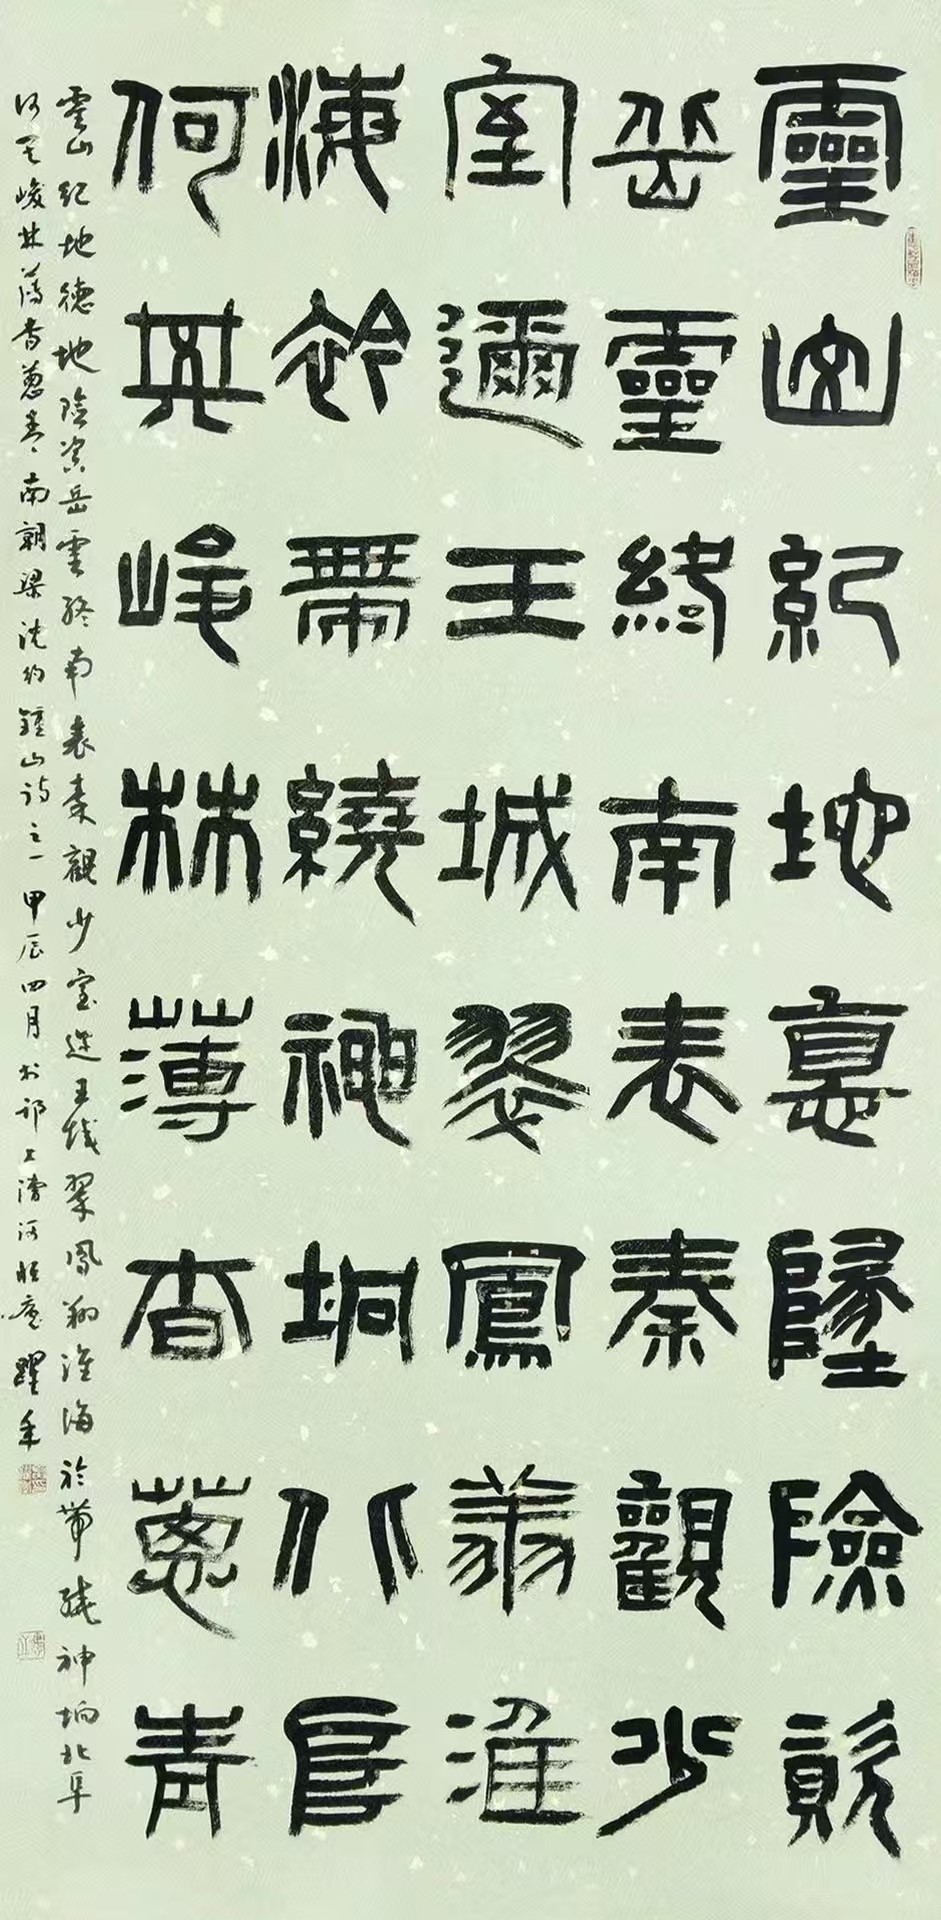 靈山紀地悳墬險資
岳靈終南表秦觀少
室邇王城翠鳳翔淮
海衿帶繞神坰北阜
何其峻林薄杳蔥青
靈山紀地德地險資岳靈終南表秦觀少室邇王城翠鳳翔淮海衿帶繞神坰北阜
何其峻林薄杳蔥青南朝梁沈約鐘山詩之一甲辰四月书邗上漕河躍年